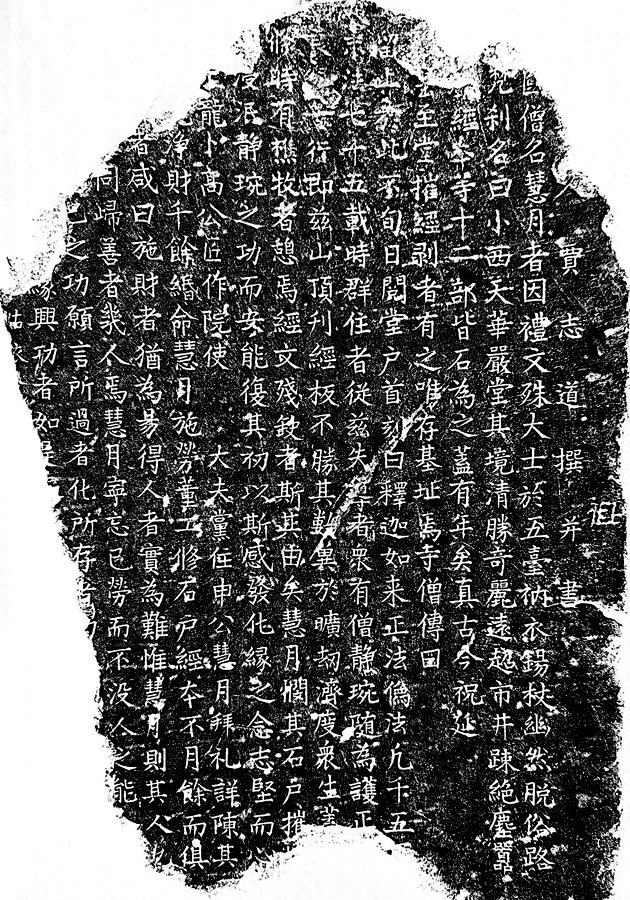 人賈志道撰并書
國僧名慧月者因禮文殊大士於五臺衲衣錫杖幽然脫俗路
名利名曰小西天華嚴堂其境清勝奇麗遠超市井踈絕塵囂
經本寺十二部皆石為之蓋有年矣真古今祝延
王堂摧經剥者有之唯存基址焉寺僧傳曰
留止於此不旬日閱堂户首刻曰釋迦如来正法像法凡千五
末法七十五載時群住者從兹失尊者衆有僧静琬随為護正
行即兹山頂刋經板不勝其數異於曠刼濟度衆生蓋
時有樵牧者憩焉經文殘鈌者斯其由矣慧月憫其石户摧
泯静琬之功而安能復其初以斯感發化緣之念志堅而心
龍卜高公匠作院使 大夫黨住申公慧月拜礼詳陳其
淨財千餘緡命慧月施勞董工修石户經本不月餘而俱
者咸曰施財者猶為易得人者實為難惟慧月則其人也
同歸善者幾人焉慧月寧忘已勞而不没人之能
已之功願言所過者化所存者
興功者如是